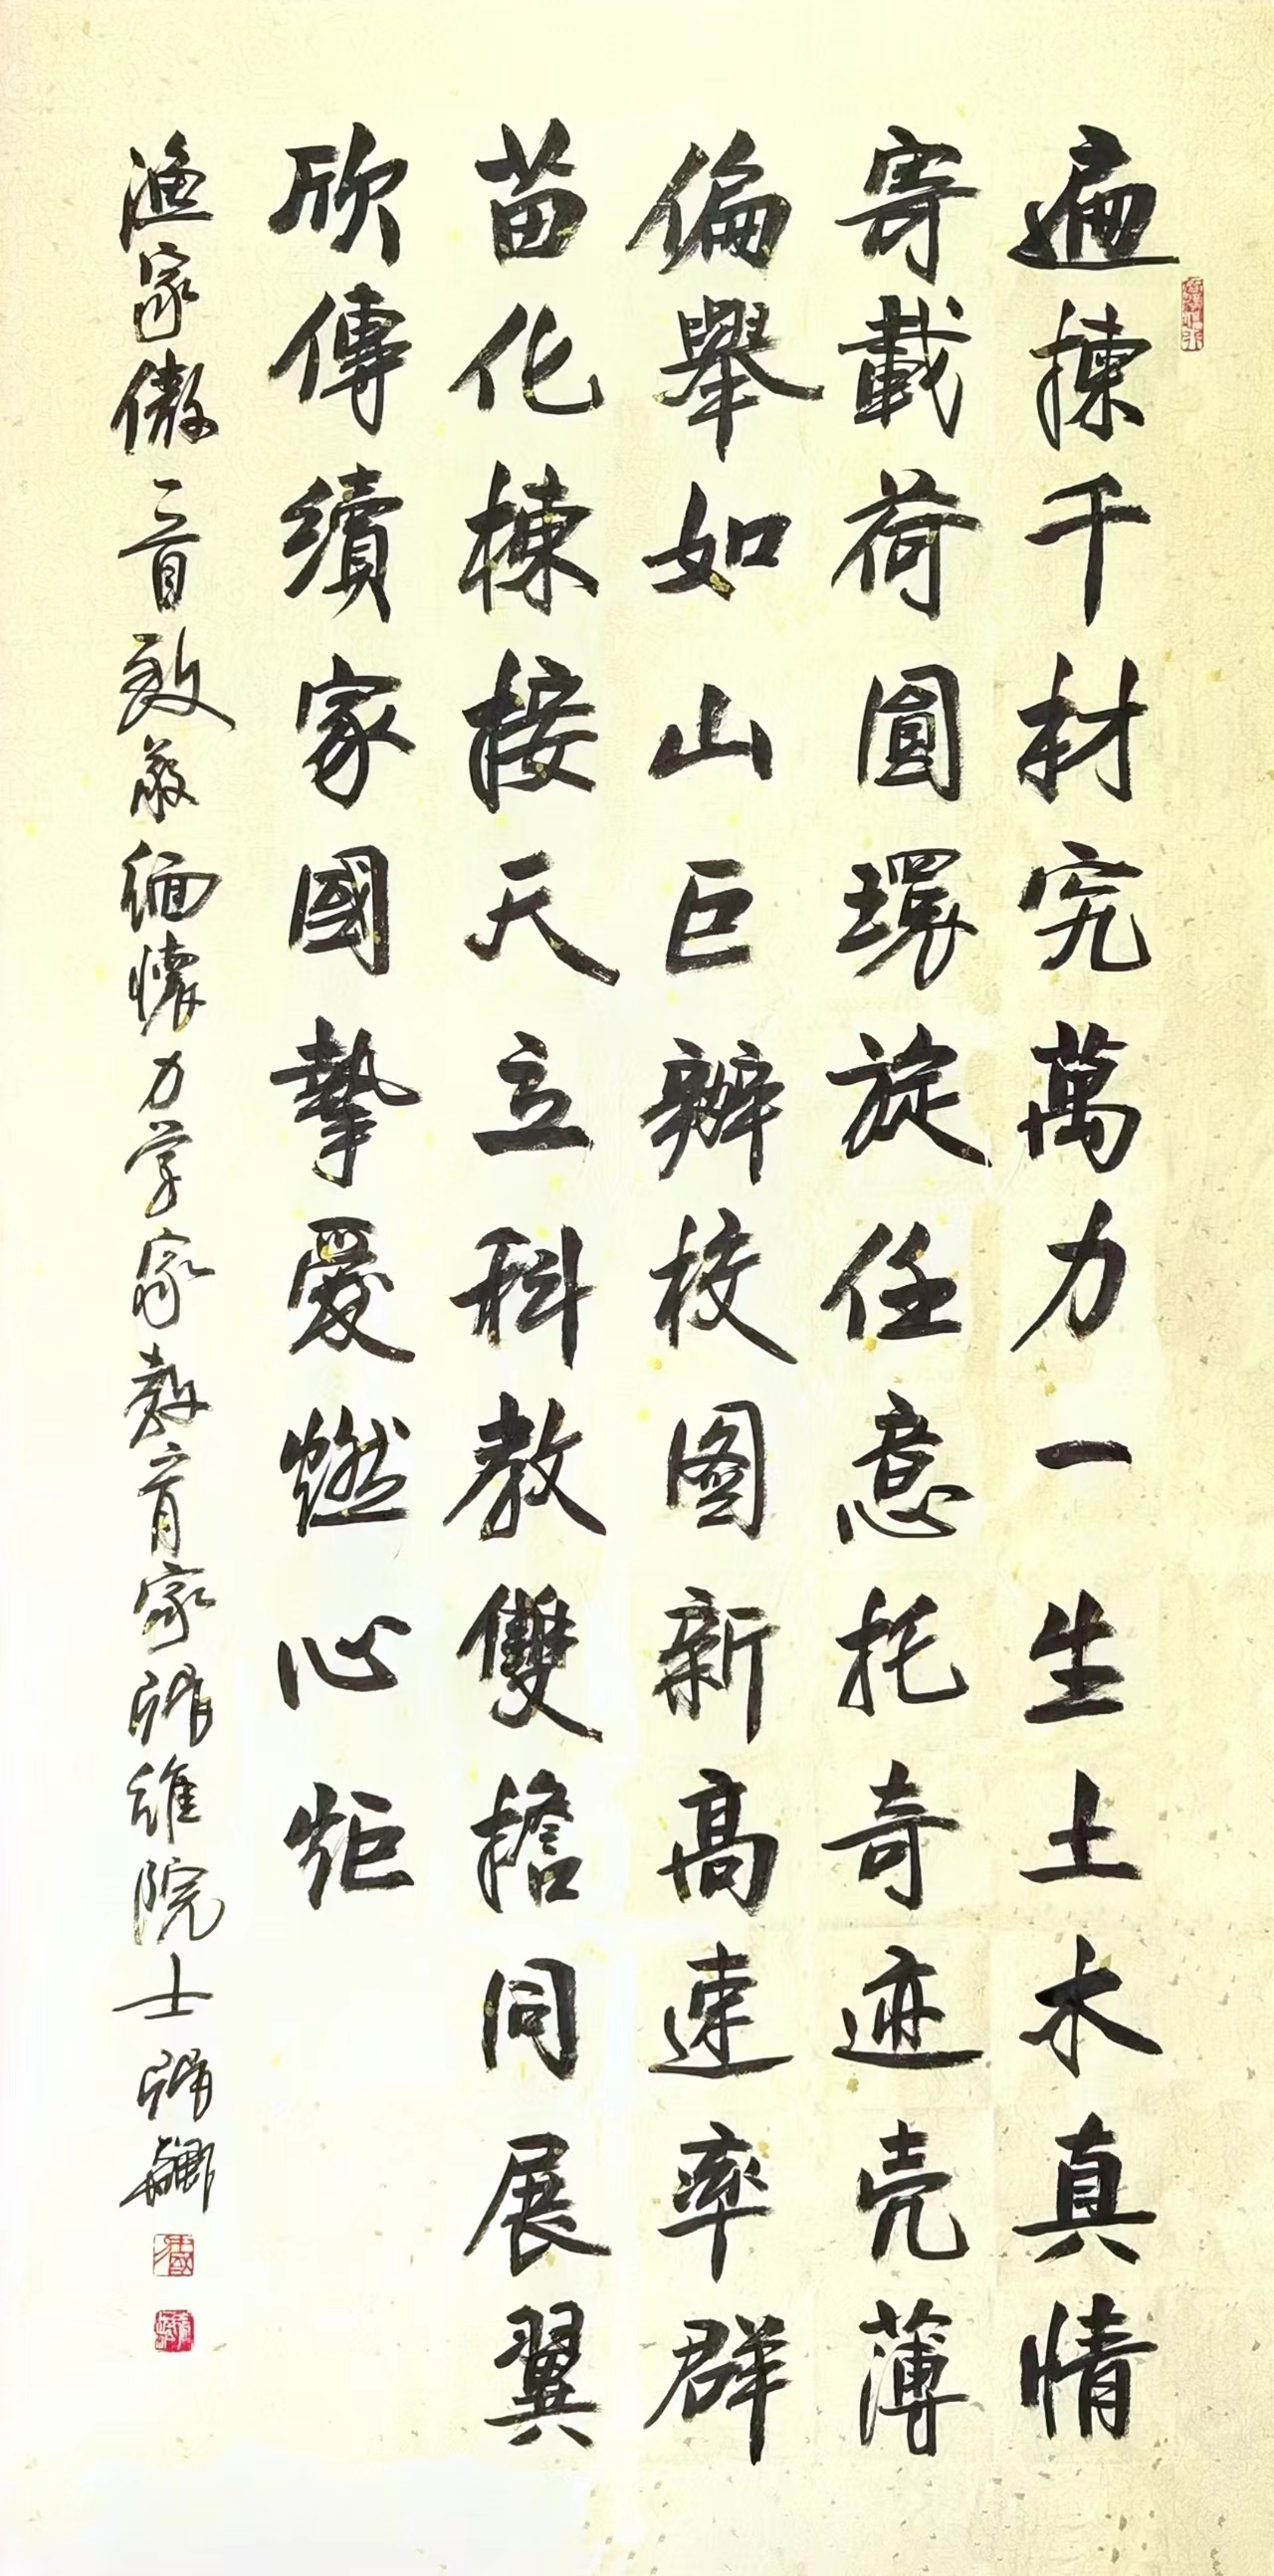 遍揀千材究萬力一生土木真情
寄載荷圓環旋任意托奇迹壳薄
偏舉如山巨辦校图新高速率群
苗化棟接天立科教雙擔同展翼
欣傳續家國摯愛燃心炬
渔家傲二首致敬缅懷力学家教育家師維院士師